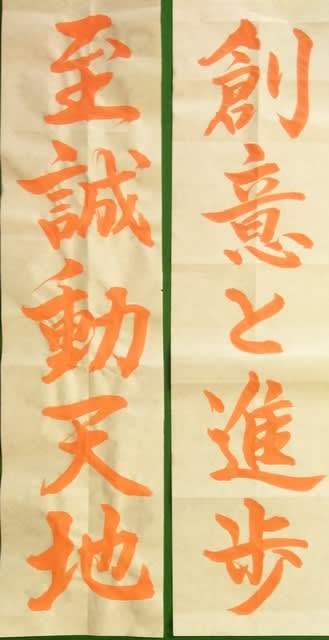 創意と進歩
至誠動天地